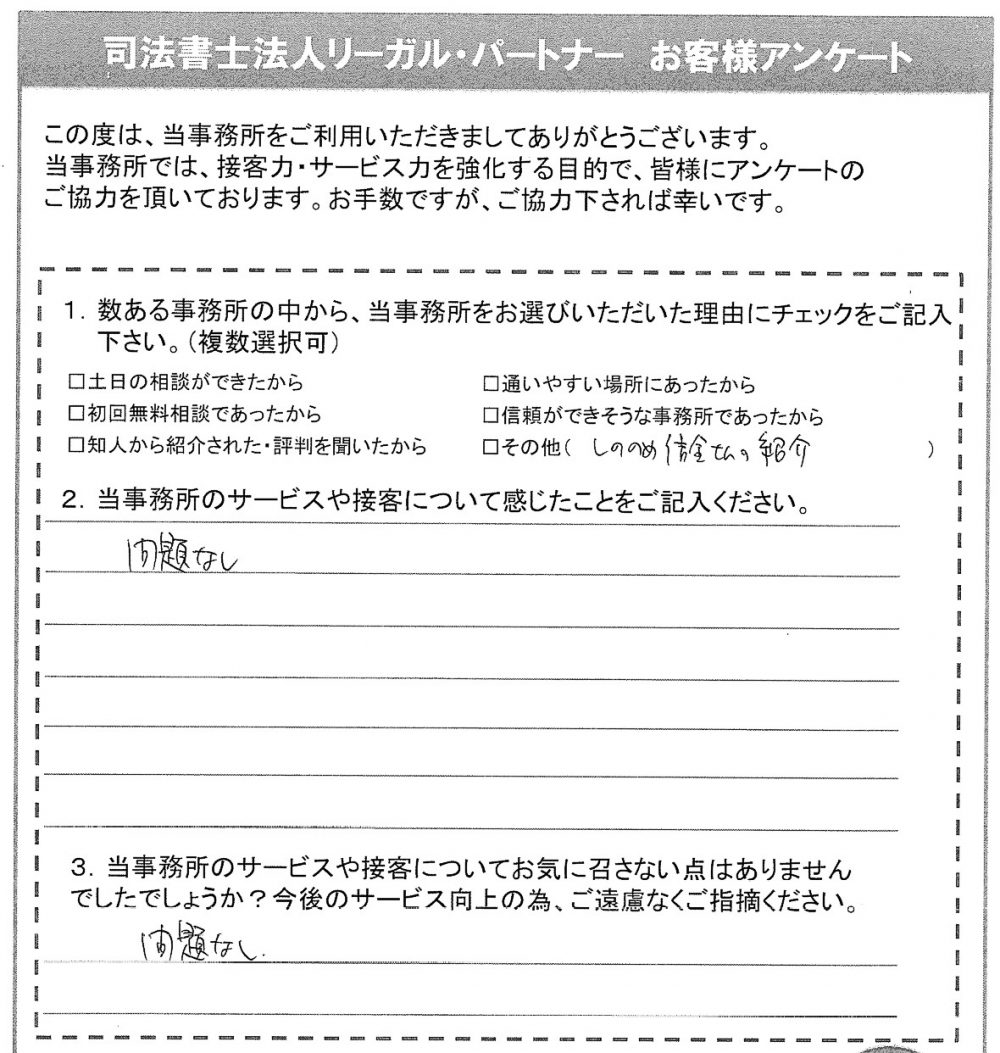 司法書士法人リーガル・パートナー お客様アンケート
この度は、当事務所をご利用いただきましてありがとうございます。
当事務所では、接客力・サービス力を強化する目的で、皆様にアンケートの
ご協力を頂いております。お手数ですが、ご協力下されば幸いです。
1. 数ある事務所の中から、当事務所をお選びいただいた理由にチェックをご記入
下さい。（複数選択可）
□土日の相談ができたから □通いやすい場所にあったから
□初回無料相談であったから □信頼ができそうな事務所であったから
□知人から紹介された・評判を聞いたから □その他（ しののめ信金さんの紹介 ）
2. 当事務所のサービスや接客について感じたことをご記入ください。
問題なし
3. 当事務所のサービスや接客についてお気に召さない点はありません
でしたでしょうか？今後のサービス向上の為、ご遠慮なくご指摘ください。
問題なし.